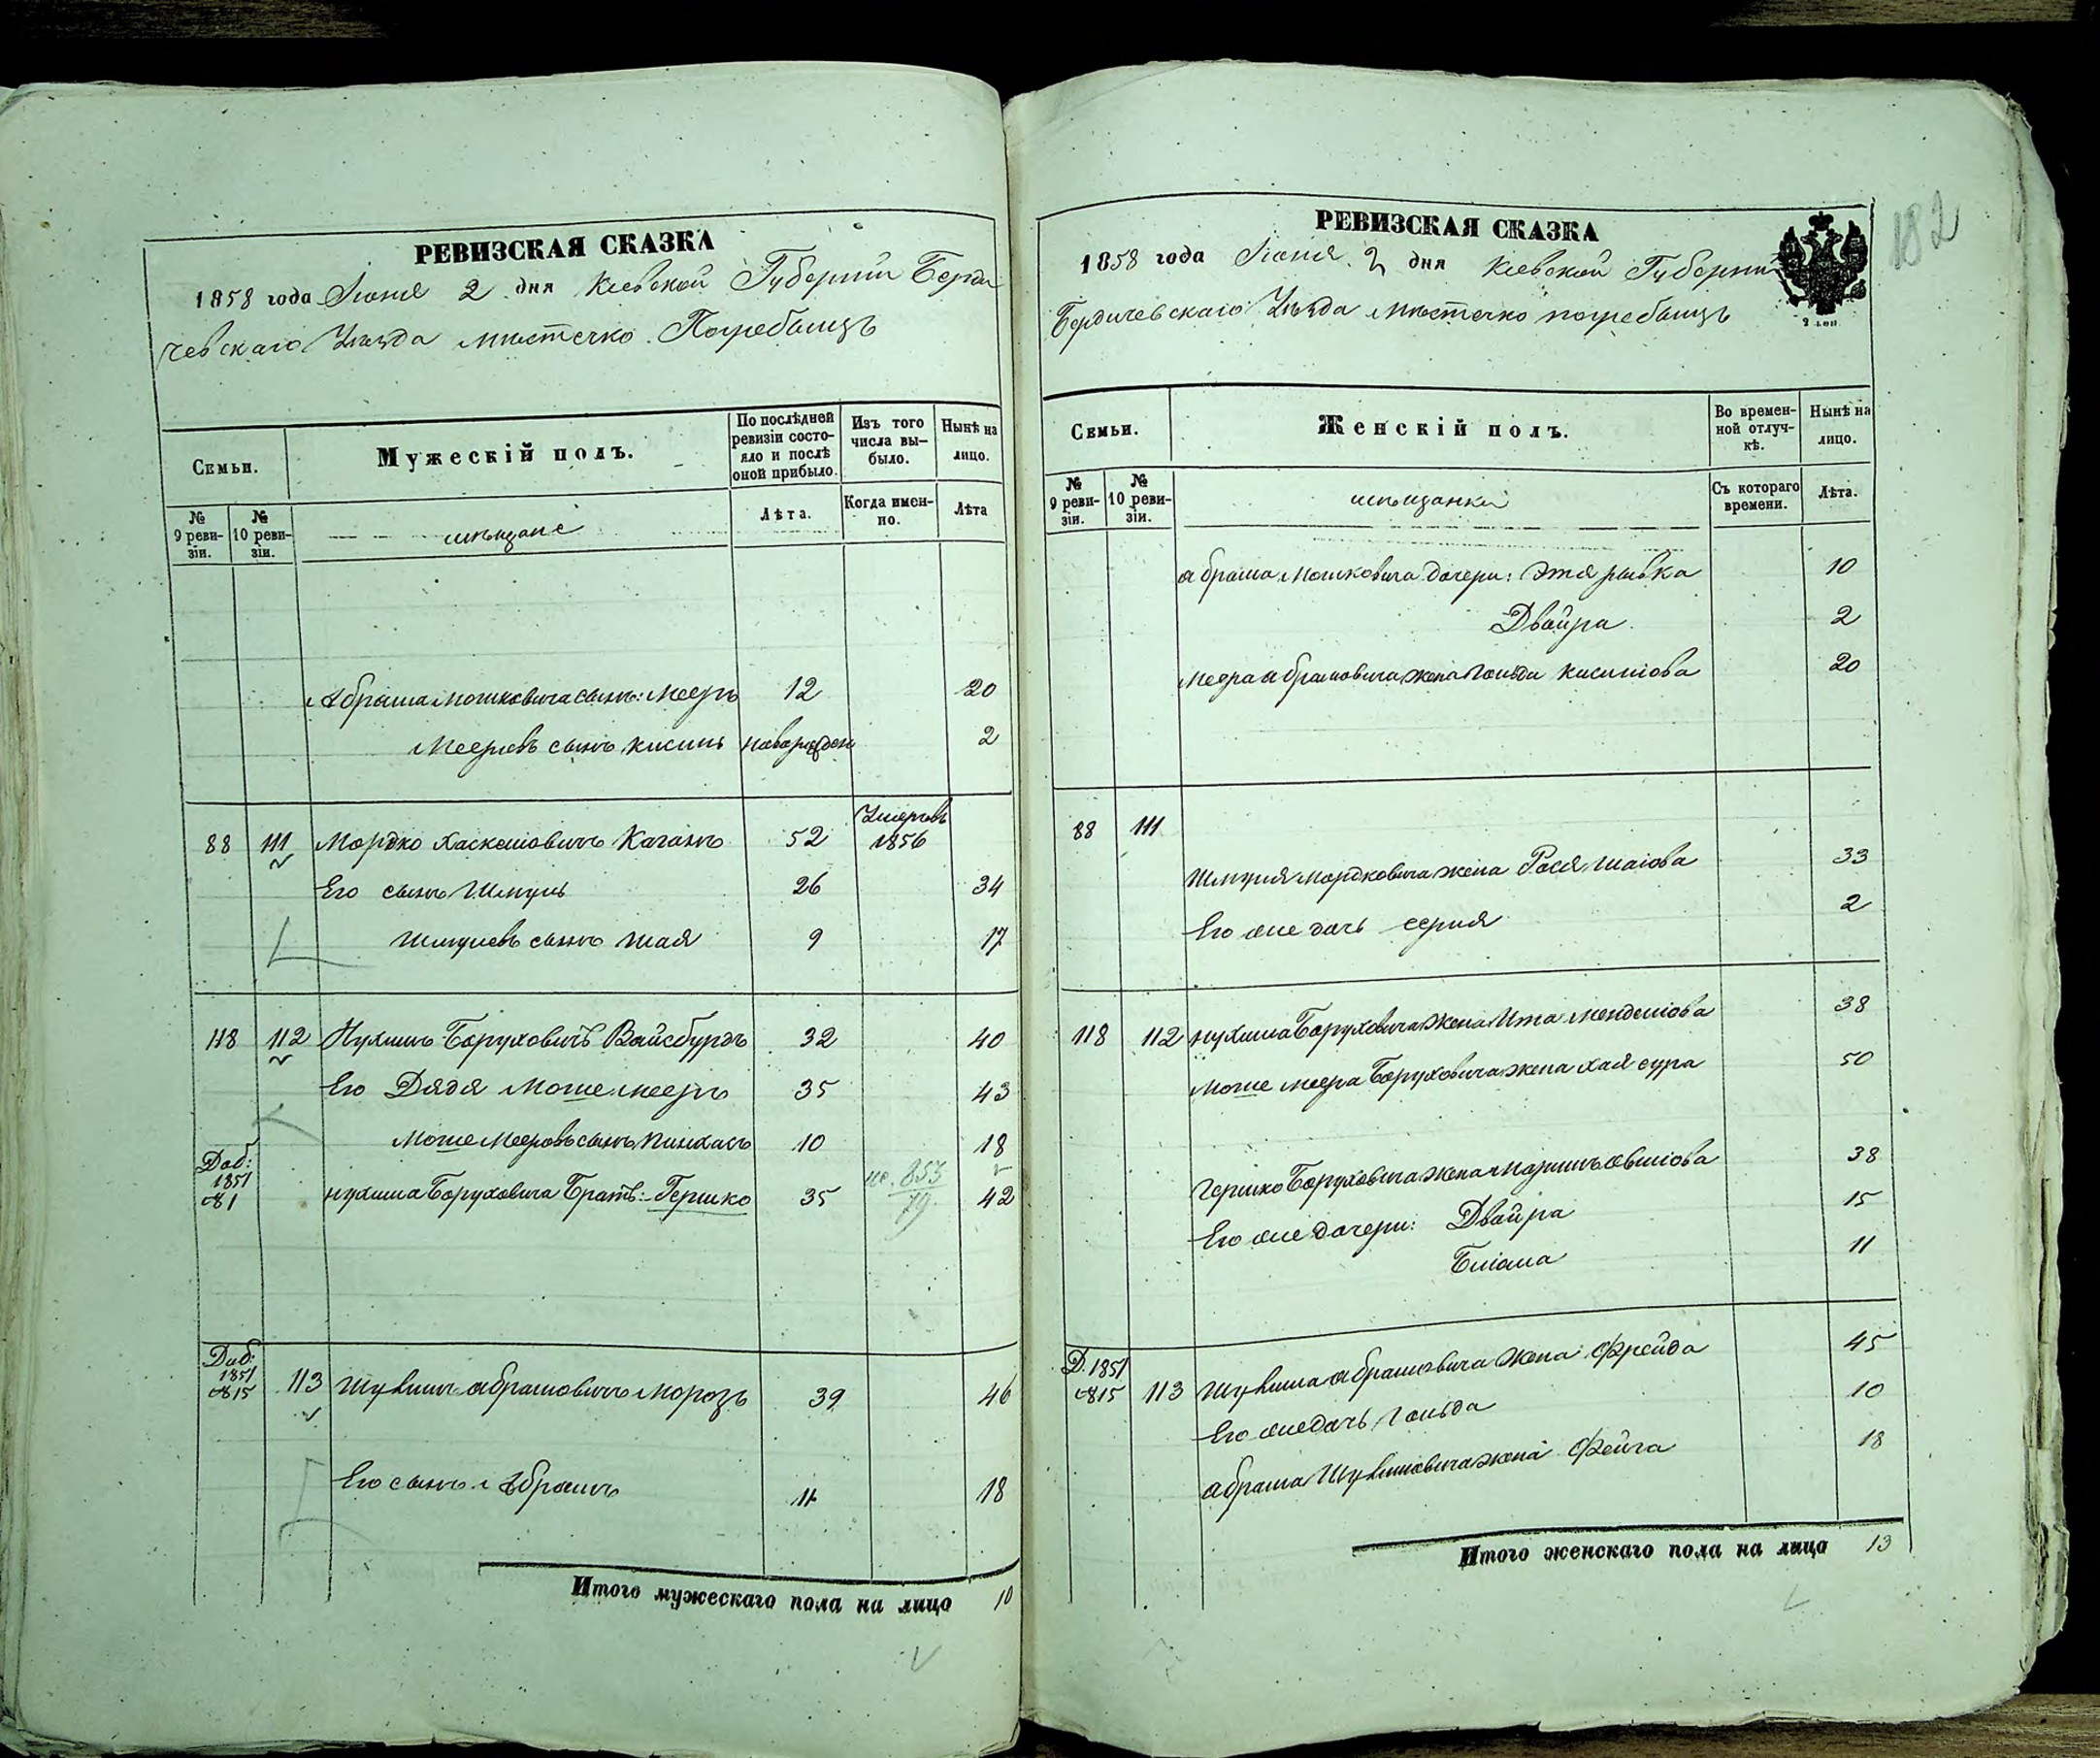 РЕВИЗСКАЯ СКАЗКА
1858 года Іюня 2 дня Кіевской Губерніи Берди
чевскаго Уѣзда мѣстечко Погребыщъ
Семьи.
Мужескій полъ.
По послѣдней ревизіи состояло и послѣ оной прибыло.
Изъ того числа вы-было.
Нынѣ на лицо.
№ 9 реви-зіи.
№ 10 реви-зіи.
мѣщане
Лѣта.
Когда имен-но.
Лѣта
Абрама Мошковича сынъ: Мееръ 12 20
Мееровъ сынъ Кисиль новорожден 2
88 111 Мордко Хаскеліовичъ Каганъ 52 Умеръ 1856
Его сынъ Шмуль 26 34
Шмулевъ сынъ Шая 9 17
118 112 Нухимъ Боруховичъ Вайсбурдъ 32 40
Его Дядя Моше Мееръ 35 43
Моше Мееровъ сынъ Пинхасъ 10 18
Доб: 1851 №1 Нухима Боруховича Братъ: Гершко 35 853 79 42
Доб: 1851 №15 113 Шулимъ Абрамовичъ Морозъ 39 46
Его сынъ Абрамъ 11 18
Итого мужескаго пола на лицо 10
182
РЕВИЗСКАЯ СКАЗКА
1858 года Іюня 2 дня Кіевской Губерніи
Бердичевскаго Уѣзда мѣстечко Погребыщъ
Семьи.
Женскій полъ.
Во времен-ной отлуч-кѣ.
Нынѣ на лицо.
№ 9 реви-зіи.
№ 10 реви-зіи.
мѣщанки
Съ котораго времени.
Лѣта.
Абрама Мошковича дочери: Этя рывка 10
Двойра 2
Меера Абрамовича жена Гольда Кисиліова 20
88 111
Шмуля Мордковича жена Рася Шаіова 33
Его же дочь серля 2
118 112 Нухима Боруховича Жена Ита Мендиліова 38
Моше Меера Боруховича жена Хая сура 50
Гершко Боруховича жена 38
Его же дочери: Двойра 15
Бліома 11
Д. 1851 №15 113 Шулима Абрамовича жена Фрейда 45
Его же дочь Гольда 10
Абрама Шулимовича жена Фейга 18
Итого женскаго пола на лицо 13